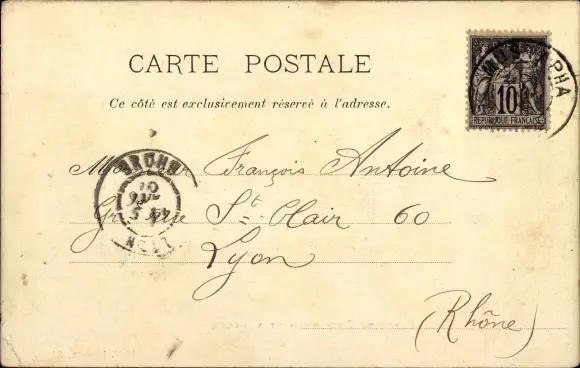 CARTE POSTALE
Ce côté est exclusivement réservé à l'adresse.
10
REPUBLIQUE FRANÇAISE
PHA
RHONE
François Antoine
St Clair 60
Lyon
(Rhône)